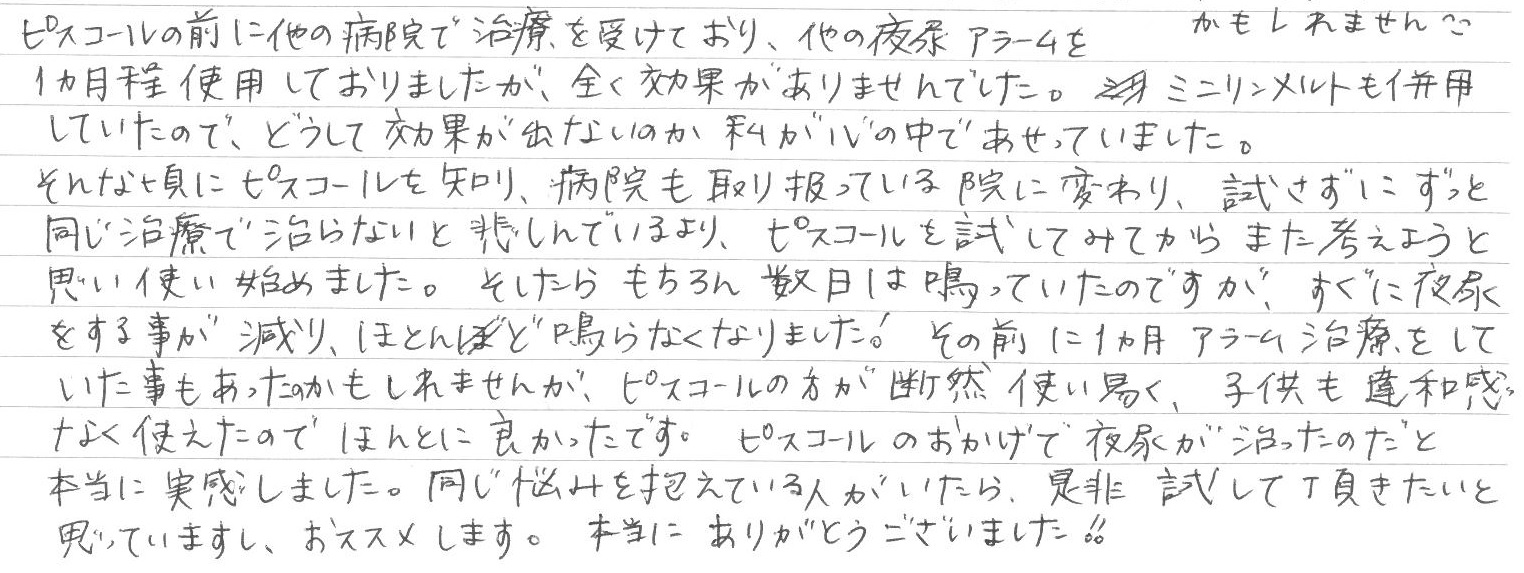 かもしれません^^
ピスコールの前に他の病院で治療を受けており、他の夜尿アラームを
1カ月程使用しておりましたが、全く効果がありませんでした。ミニリンメルトも併用
していたので、どうして効果が出ないのか私が心の中であせっていました。
そんな頃にピスコールを知り、病院も取り扱っている院に変わり、試さずにずっと
同じ治療で治らないと悲しんでいるより、ピスコールを試してみてからまた考えようと
思い使い始めました。そしたらもちろん数日は鳴っていたのですが、すぐに夜尿
をする事が減り、ほとんど鳴らなくなりました!その前に1カ月アラーム治療をして
いた事もあったのかもしれませんが、ピスコールの方が断然使い易く、子供も違和感
なく使えたのでほんとに良かったです。ピスコールのおかげで夜尿が治ったのだと
本当に実感しました。同じ悩みを抱えている人がいたら、是非試して頂きたいと
思っていますし、おススメします。本当にありがとうございました!!